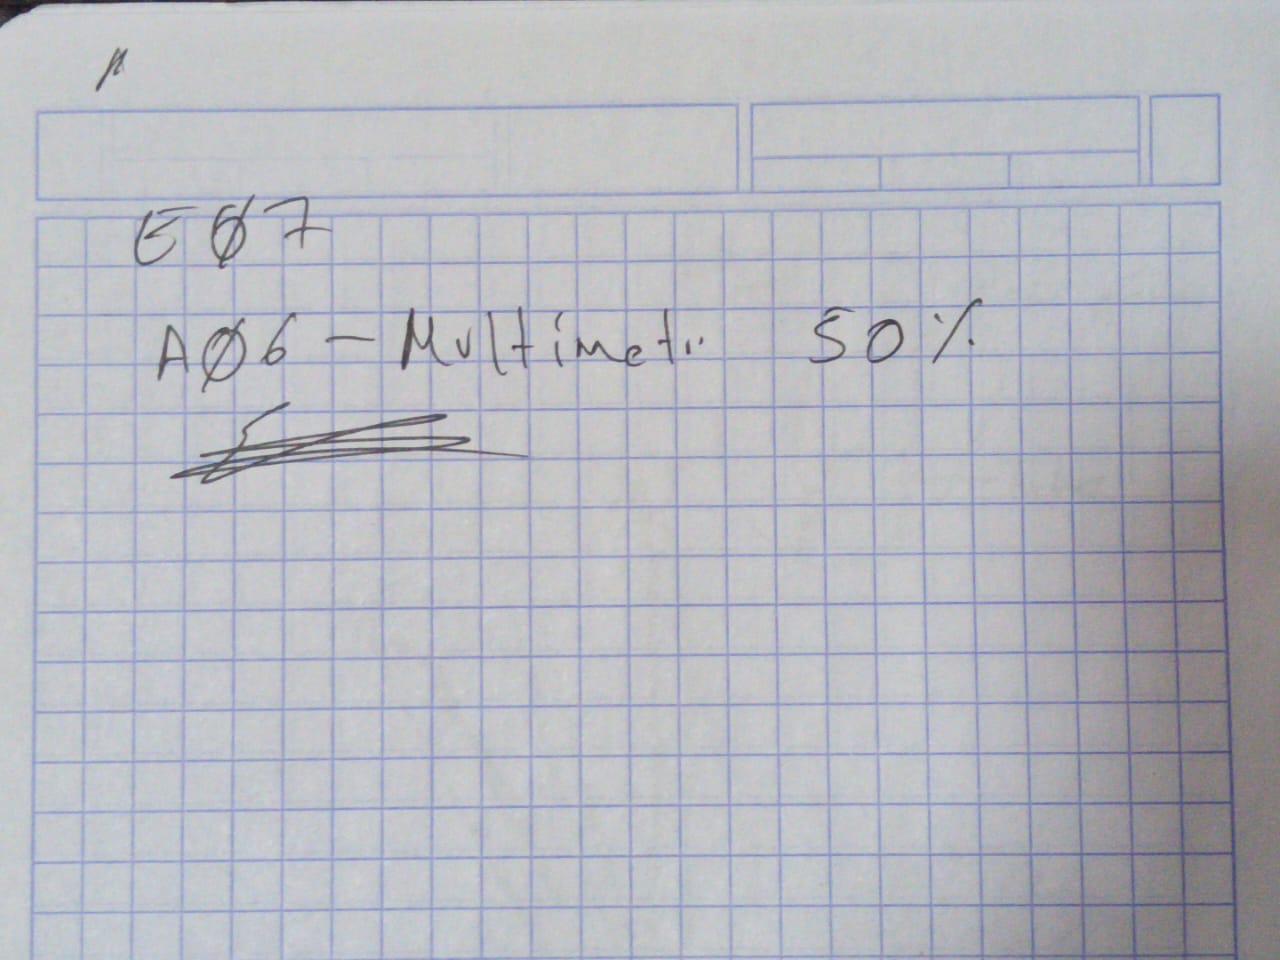 EØ7
AØ6 - Multimetr 50%